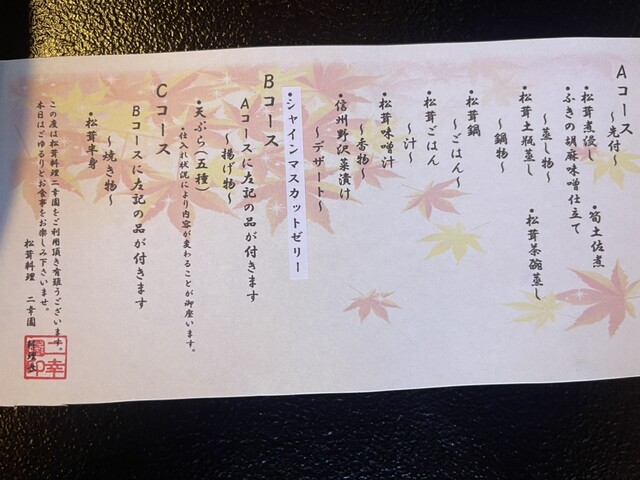 Aコース
〜先付〜
・松茸煮浸し ・筍土佐煮
・ふきの胡麻味噌仕立て
〜蒸し物〜
・松茸土瓶蒸し ・松茸茶碗蒸し
〜鍋物〜
・松茸鍋
〜ごはん〜
・松茸ごはん
〜汁〜
・松茸味噌汁
〜香物〜
・信州野沢菜漬け
〜デザート〜
・シャインマスカットゼリー
Bコース
Aコースに左記の品が付きます
〜揚げ物〜
・天ぷら(五種)
・仕入れ状況により内容が変わることが御座います。
Cコース
Bコースに左記の品が付きます
〜焼き物〜
・松茸半身
この度は松茸料理二幸園をご利用頂き有難うございます。
本日はごゆるりとお食事をお楽しみ下さいませ。
松茸料理 二幸園
料理長